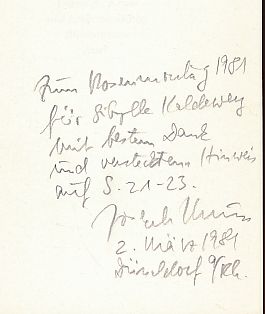 Zum Rosenmontag 1981
für Sibylle Kaldewey
mit bestem Dank
und verstecktem Hinweis
auf S. 21-23.
2. März 1981
Düsseldorf a/Rh.